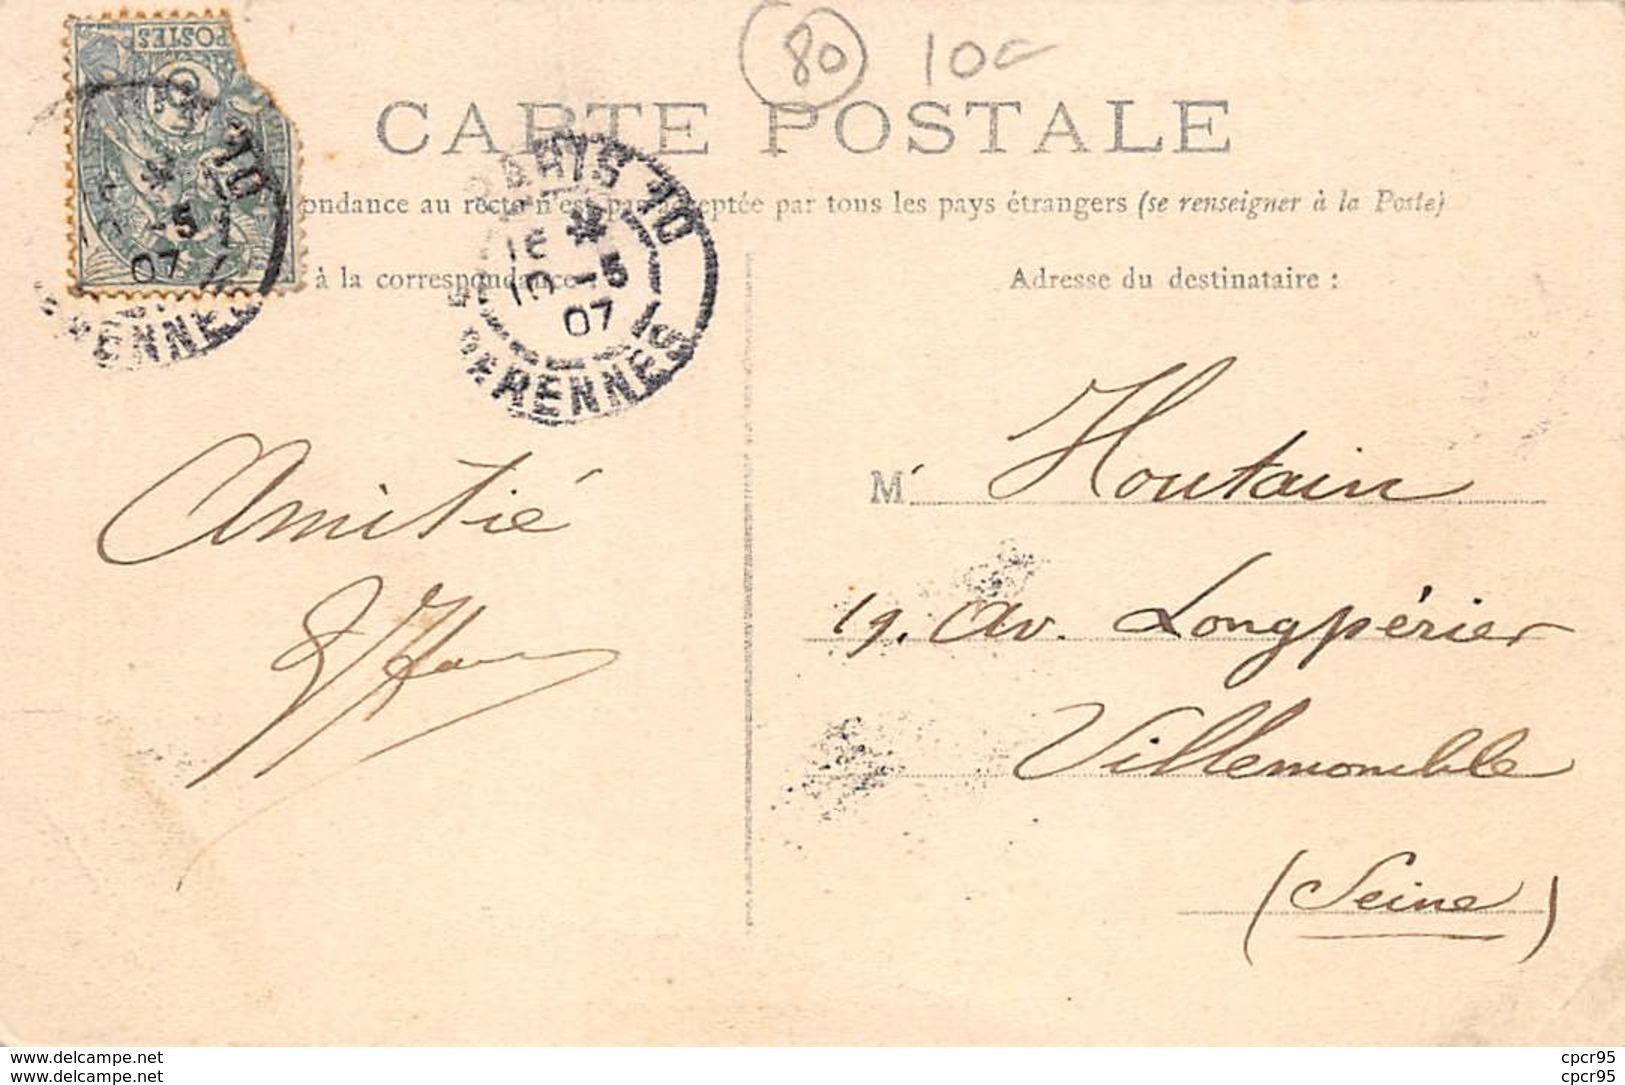 POSTES
80 10c
CARTE POSTALE
ondance au recto n'est pas acceptée par tous les pays étrangers (se renseigner à la Poste)
à la correspondance
Adresse du destinataire :
PARIS 10
16 *
10 -5
07
R. DE RENNES
10
* -5
07
RENNES
Amitié
M. Houtain
19. Av. Longpérier
Villemomble
(Seine)
www.delcampe.net cpcr95
www.delcampe.net cpcr95